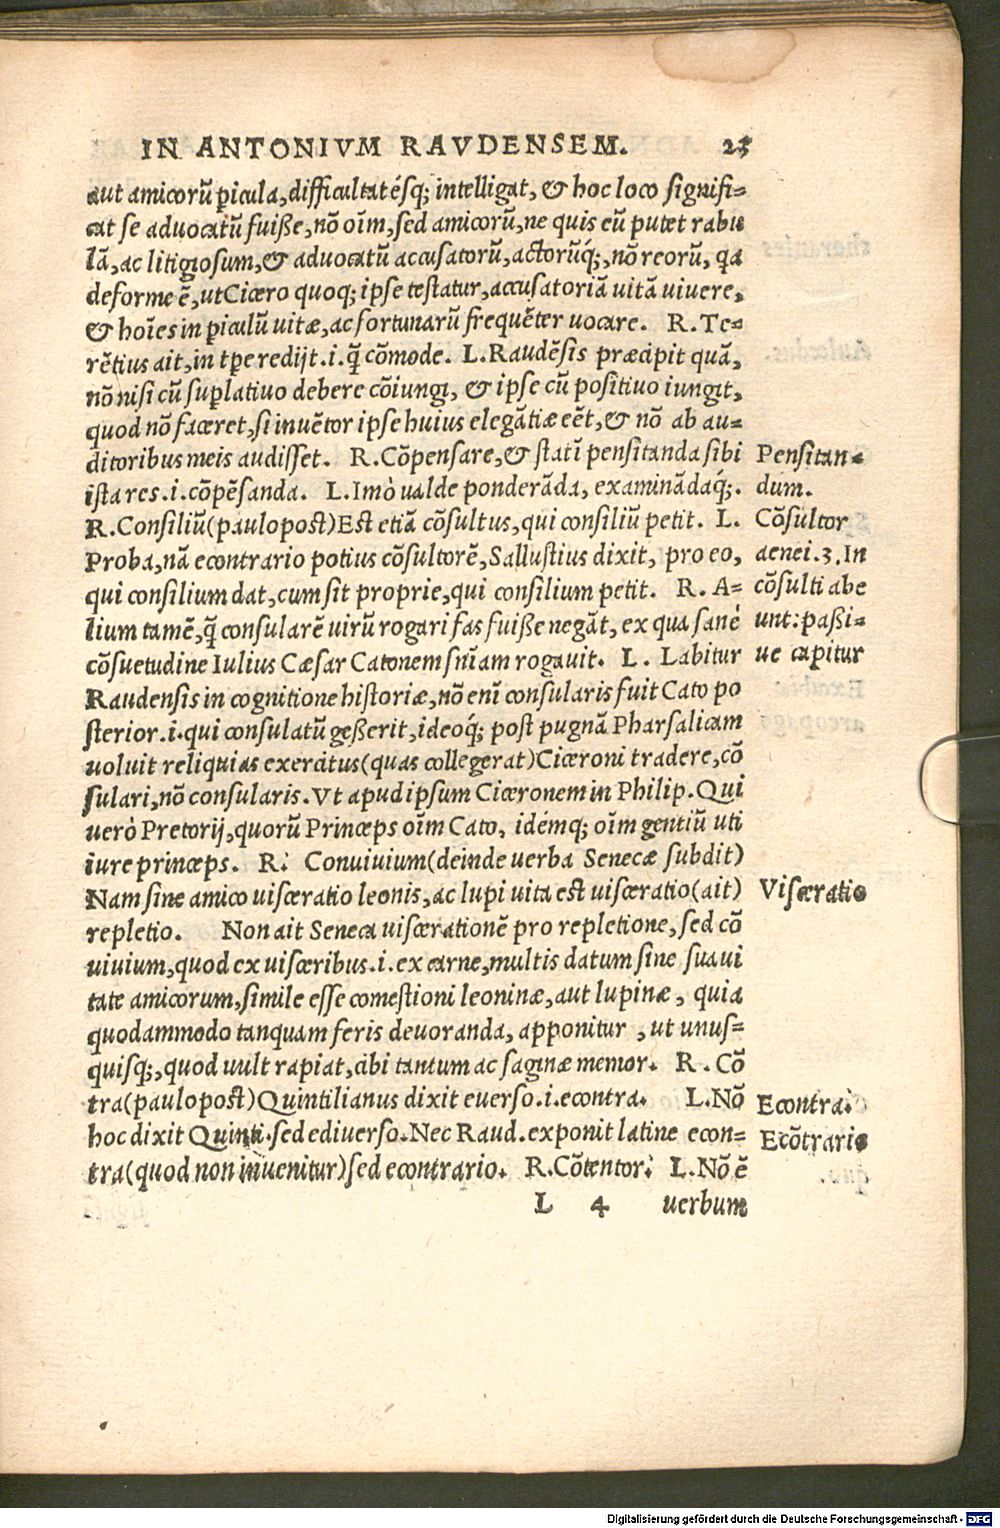 IN ANTONIVM RAVDENSEM. 25
aut amicorũ ꝑicula, difficultatésq; intelligat, & hoc loco signifi-
cat se aduocatũ fuiße, nõ oĩm, sed amicorũ, ne quis eũ putet rabu
lã, ac litigiosum, & aduocatũ accusatorũ, actorũq́;, nõ reorũ, qa
deforme ẽ, ut Cicero quoq; ipse testatur, accusatoriã uitã uiuere,
& hoĩes in ꝑiculũ uitæ, ac fortunarũ frequẽter uocare. R. Te-
rẽtius ait, in tꝑe redijt .i. q̃ cõmode. L. Raudẽsis præcipit quã,
nõ nisi cũ suꝑlatiuo debere cõiungi, & ipse cũ positiuo iungit,
quod nõ faceret, si inuẽtor ipse huius elegãtiæ eẽt, & nõ ab au-
ditoribus meis audisset. R. Cõpensare, & statĩ pensitanda sibi
ista res .i. cõpẽsanda. L. Imò ualde ponderãda, examinãdaq́;.
R. Consiliũ (paulo post) Est etiã cõsultus, qui consiliũ petit. L.
Proba, nã econtrario potius cõsultorẽ, Sallustius dixit, pro eo,
qui consilium dat, cum sit proprie, qui consilium petit. R. A-
lium tamẽ, q̃ consularẽ uirũ rogari fas fuiße negãt, ex qua sanè
cõsuetudine Iulius Cæsar Catonem sñiam rogauit. L. Labitur
Raudensis in cognitione historiæ, nõ enĩ consularis fuit Cato po
sterior .i. qui consulatũ geßerit, ideoq́; post pugnã Pharsalicam
uoluit reliquias exercitus (quas collegerat) Ciceroni tradere, cõ
sulari, nõ consularis. Vt apud ipsum Ciceronem in Philip. Qui
uerò Pretorij, quorũ Princeps oĩm Cato, idémq; oĩm gentiũ uti
iure princeps. R. Conuiuium (deinde uerba Senecæ subdit)
Nam sine amico uisceratio leonis, ac lupi uita est uisceratio (ait)
repletio. Non ait Seneca uiscerationẽ pro repletione, sed cõ
uiuium, quod ex uisceribus .i. ex carne, multis datum sine suaui
tate amicorum, simile esse comestioni leoninæ, aut lupinæ, quia
quodammodo tanquam feris deuoranda, apponitur, ut unus-
quisq;, quod uult rapiat, cibi tantum ac saginæ memor. R. Cõ
tra (paulo post) Quintilianus dixit euerso .i. econtra. L. Nõ
hoc dixit Quinti. sed ediuerso. Nec Raud. exponit latine econ-
tra (quod non inuenitur) sed econtrario. R. Cõtentor. L. Nõ ẽ
L 4 uerbum
Pensitan-
dum.
Cõsultor
aenei. 3. In
cõsulti abe
unt: paßi-
ue capitur
Visceratio
Econtra.
Ecõtrario
Digitalisierung gefördert durch die Deutsche Forschungsgemeinschaft - DFG